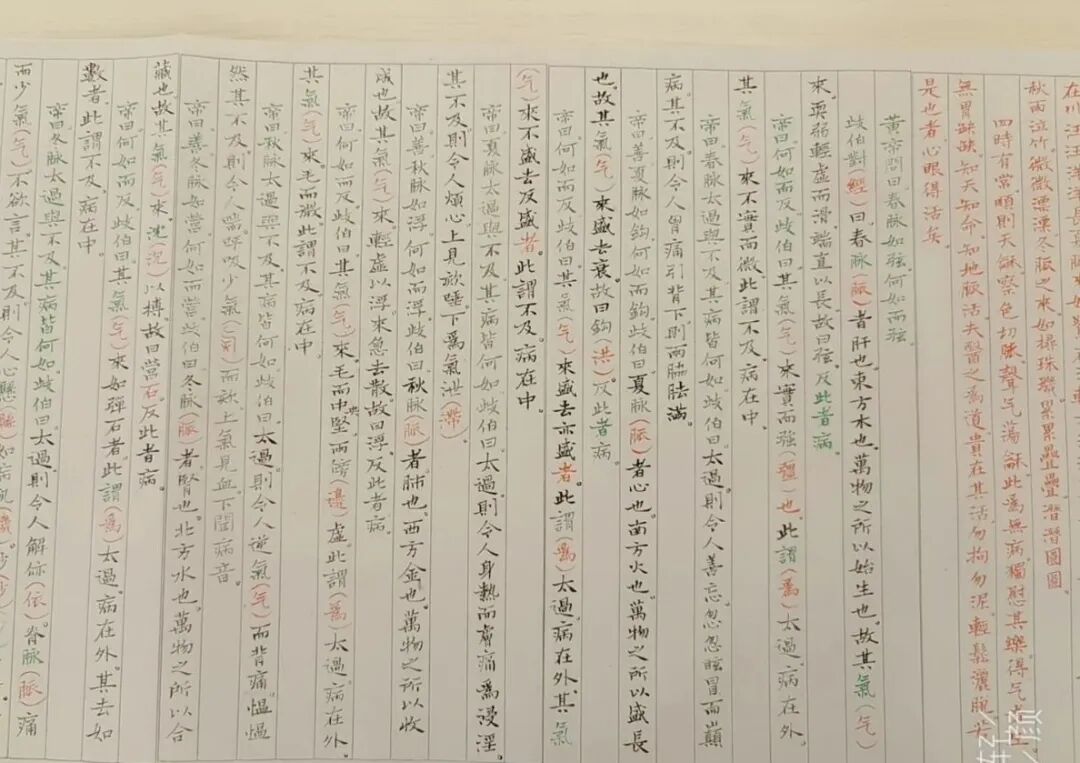 在川汪汪洋洋長夏
秋雨泣竹微微漂漂冬脈之來如撏珠瓔累累疊疊潛潛圓圓
四時有常順則天龢緊色切脈聲气蕩龢此為無病獨慰其樂得气
無胃缺缺知天知命知地脈活夫醫之為道貴在其活勿拘勿泥輕鬆灑脫
是也者心眼得活矣
黃帝問曰春脈如弦何如而弦
歧伯對(經)曰春脈(脈)者肝也東方木也萬物之所以始生也故其氣(气)
來耎弱輕虛而滑端直以長故曰弦反此者病
帝曰何如而反歧伯曰其氣(气)來實而強(疆)也此謂(為)太過病在外
其氣(气)來不實而微此謂不及病在中
帝曰春脈太過與不及其病皆何如歧伯曰太過則令人善忘忽忽眩冒而巔
病其不及則令人胷痛引背下則兩脇胠滿
帝曰善夏脈如鈎何如而鈎歧伯曰夏脈(脈)者心也南方火也萬物之所以盛長
也故其氣(气)來盛去衰故曰鈎(洪)反此者病
帝曰何如而反歧伯曰其氣(气)來盛去亦盛者此謂(為)太過病在外其氣
(气)來不盛去反盛者此謂不及病在中
帝曰夏脈太過與不及其病皆何如歧伯曰太過則令人身熱而膚痛為浸淫
其不及則令人煩心上見欬唾下為氣泄(帶)
帝曰善秋脈如浮何如而浮歧伯曰秋脈(脈)者肺也西方金也萬物之所以收
成也故其氣(气)來輕虛以浮來急去散故曰浮反此者病
帝曰何如而反歧伯曰其氣(气)來毛而中央堅兩旁(邊)虛此謂(為)太過病在外
其氣(气)來毛而微此謂不及病在中
帝曰秋脈太過與不及其病皆何如歧伯曰太過則令人逆氣(气)而背痛慍慍
然其不及則令人喘呼吸少氣而欬上氣見血下聞病音
帝曰善冬脈如營何如而營歧伯曰冬脈(脈)者腎也北方水也萬物之所以合
藏也故其氣(气)來沈(沉)以搏故曰營石反此者病
帝曰何如而反歧伯曰其氣(气)來如彈石者此謂(為)太過病在外其去如
數者此謂不及病在中
帝曰冬脈太過與不及其病皆何如歧伯曰太過則令人解㑊(依)脊脈(脈)痛
而少氣(气)不欲言其不及則令人心懸如病